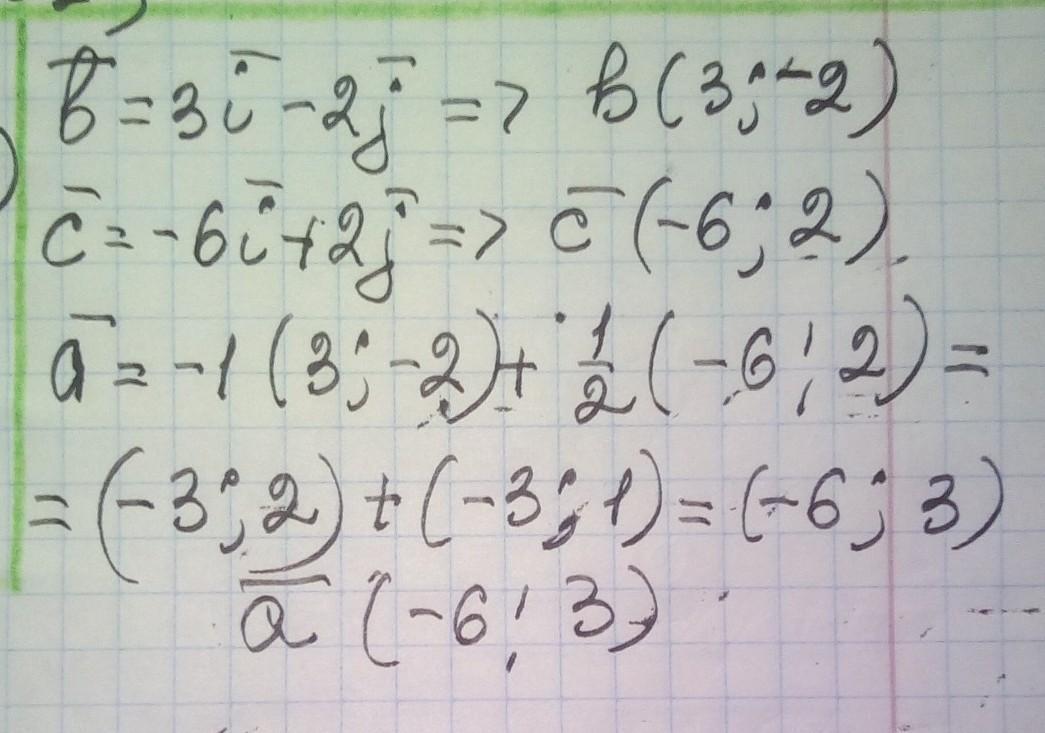 b̅ = 3i̅ - 2j̅ => b(3; -2)
c̅ = -6i̅ + 2j̅ => c̅(-6; 2).
a̅ = -1(3; -2) + 1/2(-6; 2) =
= (-3; 2) + (-3; 1) = (-6; 3)
a̅(-6; 3)